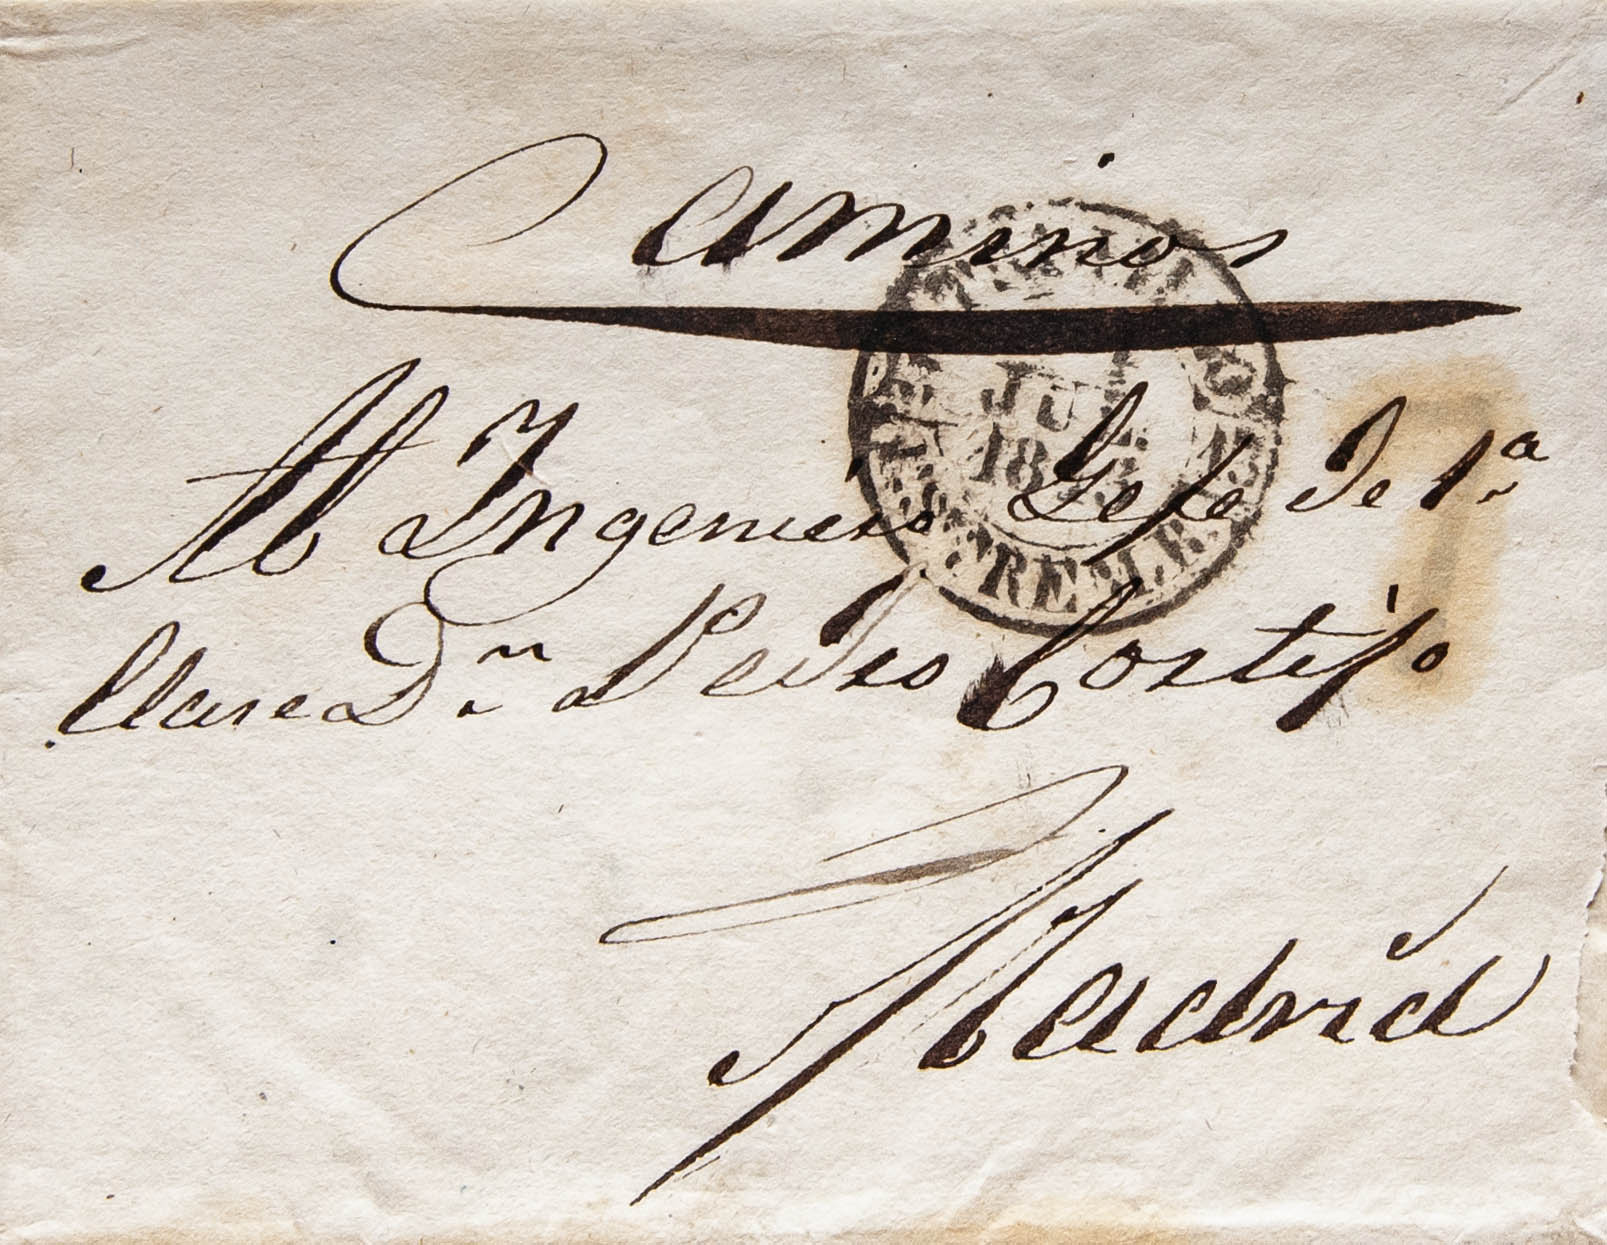 Caminos
JUL
18
ESTREM.B.
Al Ingeniero Gefe de 1ª
Clase Dn Pedro Cortijo
Madrid